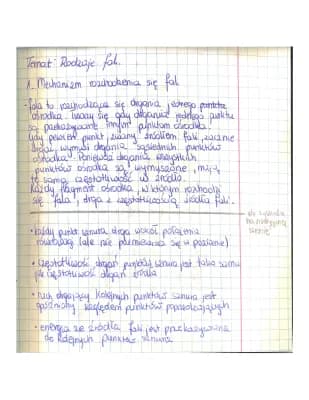 Temat: Rodzaje fal.
1. Mechanizm rozchodzenia się fal
fala to rozchodzące się drgania jednego punktu
ośrodka. Inaczej się gdy drgania jednego punktu
są przekazywane innym punktom ośrodka.
Gdy pewien punkt zwany źródłem fali zacznie
drgać, wymusi drgania sąsiednich punktów
ośrodka. Ponieważ drgania wszystkich
punktów ośrodka są wymuszone, mają
tę samą częstotliwość co źródło.
Każdy fragment ośrodka, w którym rozchodzi
się fala, drga z częstotliwością źródła fali.
• każdy punkt sznura drga wokół położenia
równowagi (ale nie przemieszcza się w poziomie)
• częstotliwość drgań punktów sznura jest taka sama
jak częstotliwość drgań źródła
• ruch drgający kolejnych punktów sznura jest
opóźniony względem punktów poprzedzających
• energia ze źródła fali jest przekazywana
do kolejnych punktów sznura